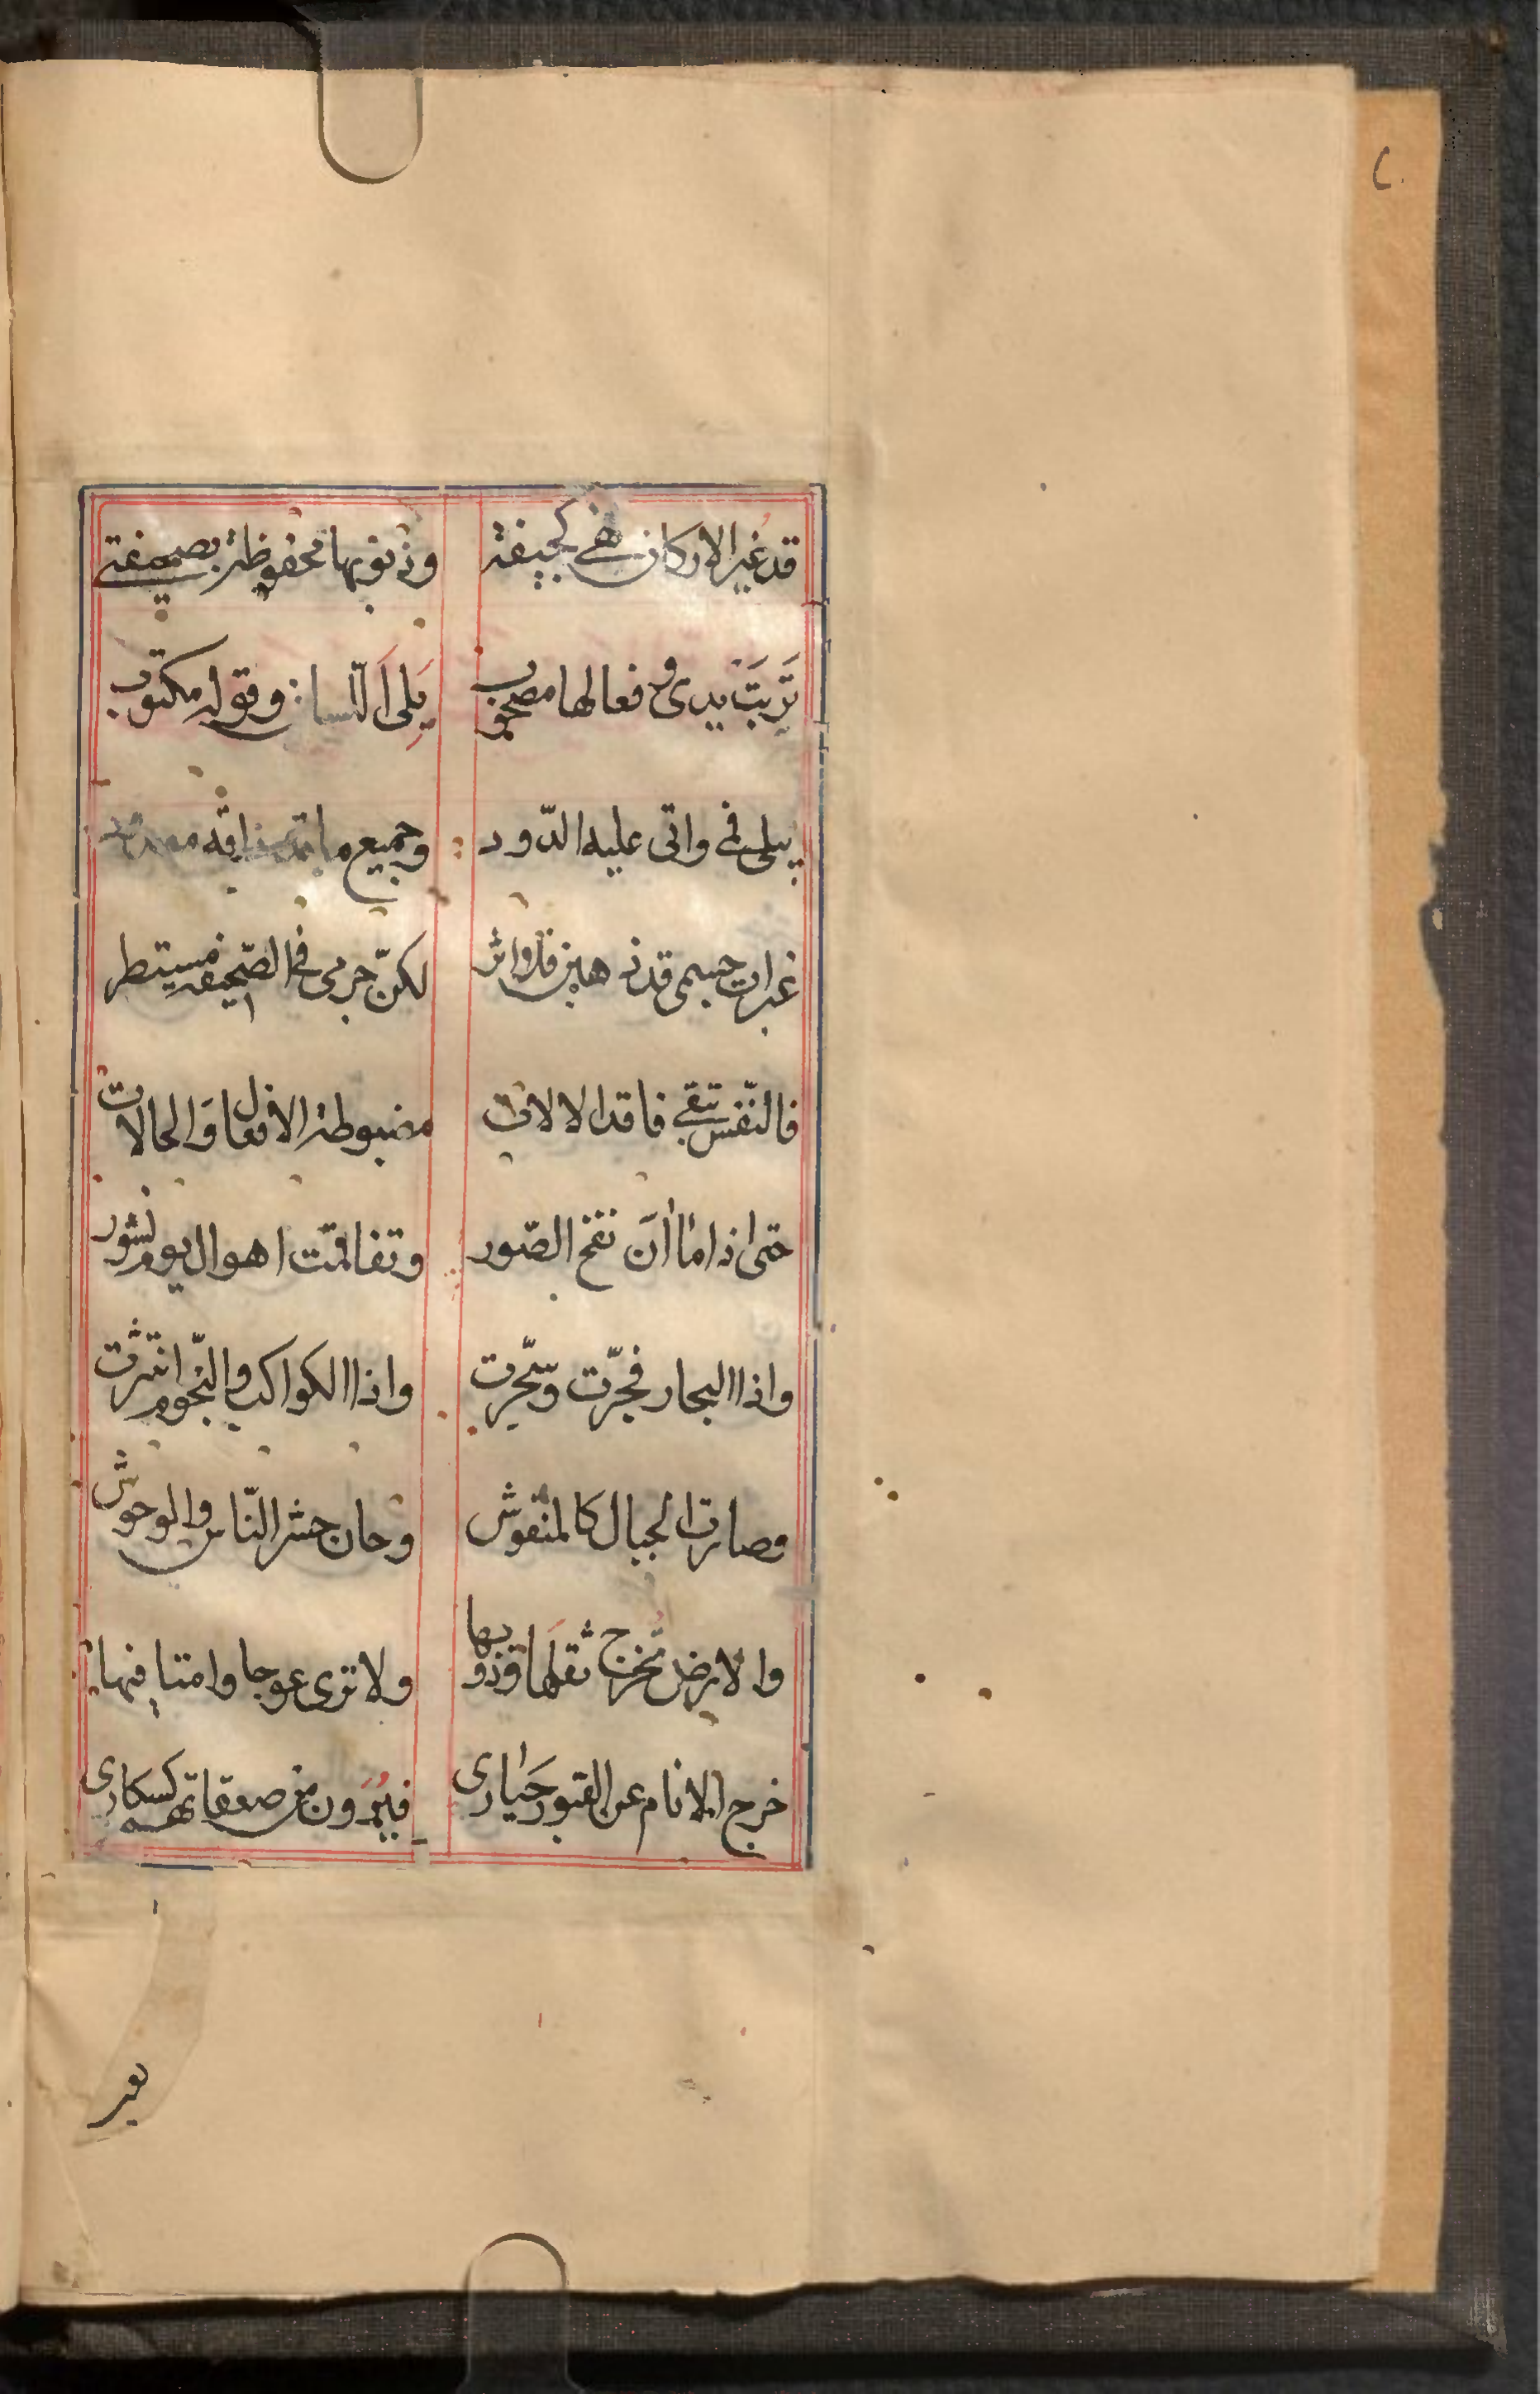 قد غير الاركان فهي كجيفة وذنوبها محفوظة بصحيفة
تَرِبَتْ يدى وفعالها مصحوب يَبلى اللّسان وقوله مكتوب
يبلى فمى واتى عليه الدّود وجميع ما
غبرات جسمى قد ذهبن فلا اثر لكنّ جرمى فى الصّحيفة مستطر
فالنّفس تبقى فاقد الالات مضبوطة الافعال وَالحالات
حتى اذا ما اَن نفخ الصّور وتفاقمت اهوال يوم نشور
واذا البحار فجّرت وسجّرت واذا الكواكب والنّجوم انتثرت
وصارت الجبال كالمنفوش وحان حشر النّاس والوحوش
والارض تُخرج ثقلها وذوبها ولا ترى عوجا وامتا فيها
خرج الانام عن القبور حَيارى فيُرَون من صعقاتهم كسكارى